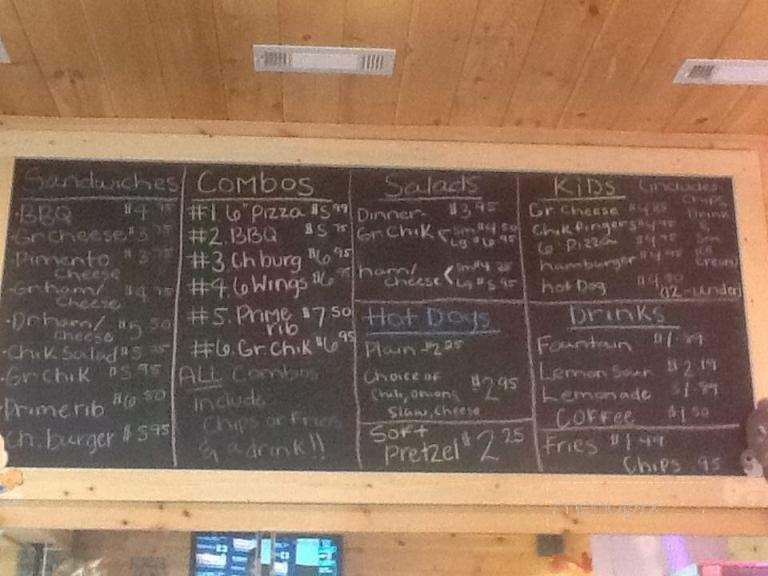 Sandwiches
BBQ $4
Gr Cheese $3
Pimento $3
Cheese
Gr ham/ $4
Cheese
ham/
Cheese $5 50
Chik Salad $5
Gr Chik $5 95
Prime rib $6 50
Ch. burger $5 95
Combos
#1 6" Pizza $5 99
#2. BBQ $5
#3. Ch burg $6 95
#4. 6 Wings $6
#5. Prime $7 50
rib
#6. Gr. Chik $6 95
ALL Combos
include
Chips or Fries
& a drink!!
Salads
Dinner- $3 95
Gr Chik < Sm $4 50
Lg $6 95
ham/ < Sm $4
cheese Lg $5 95
Hot Dogs
Plain $2 25
Choice of $2 95
Chili, onions
Slaw, cheese
Soft
Pretzel $2 25
Kids (includes
Chips
Drink
&
Ice
Cream)
Gr Cheese
Chik Fingers
6 Pizza
hamburger
hot Dog
(12-under)
Drinks
Fountain $1
Lemon Sour $2
Lemonade
Coffee $1 50
Fries $1 99
Chips 95